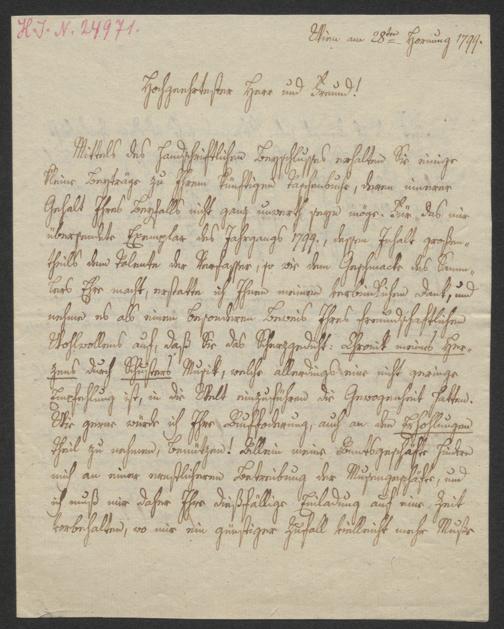 H. I. N. 24971.
Wien am 28ten Hornung 1799.
Hochgeehrtester Herr und Freund!
Mittels des handschriftlichen Beyschlusses erhalten Sie einige
kleine Beyträge zu Ihrem künftigen Taschenbuche, deren innerer
Gehalt Ihres Beyfalls nicht ganz unwerth seyn möge. Für das mir
übersendete Exemplar des Jahrgangs 1799., dessen Inhalt großen-
theils dem Talente der Verfasser, so wie dem Geschmacke des Samm-
lers Ehre macht, erstatte ich Ihnen meinen verbindlichen Dank, und
nehme es als einen besonderen Beweis Ihres freundschaftlichen
Wohlwollens auf, daß Sie das Scherzgedicht: Chronik meines Her-
zens durch Schusters Musik, welche allerdings eine nicht geringe
Empfehlung ist, in die Welt einzuführen die Gewogenheit hatten.
Wie gerne würde ich Ihre Aufforderung, auch an den Erhohlungen
Theil zu nehmen, benützen! Allein meine Amtsgeschäfte hindern
mich an einer ernstlicheren Betreibung der Musengeschäfte, und
ich muß mir daher Ihre dießfällige Einladung auf eine Zeit
vorbehalten, wo mir ein günstiger Zufall vielleicht mehr Muße